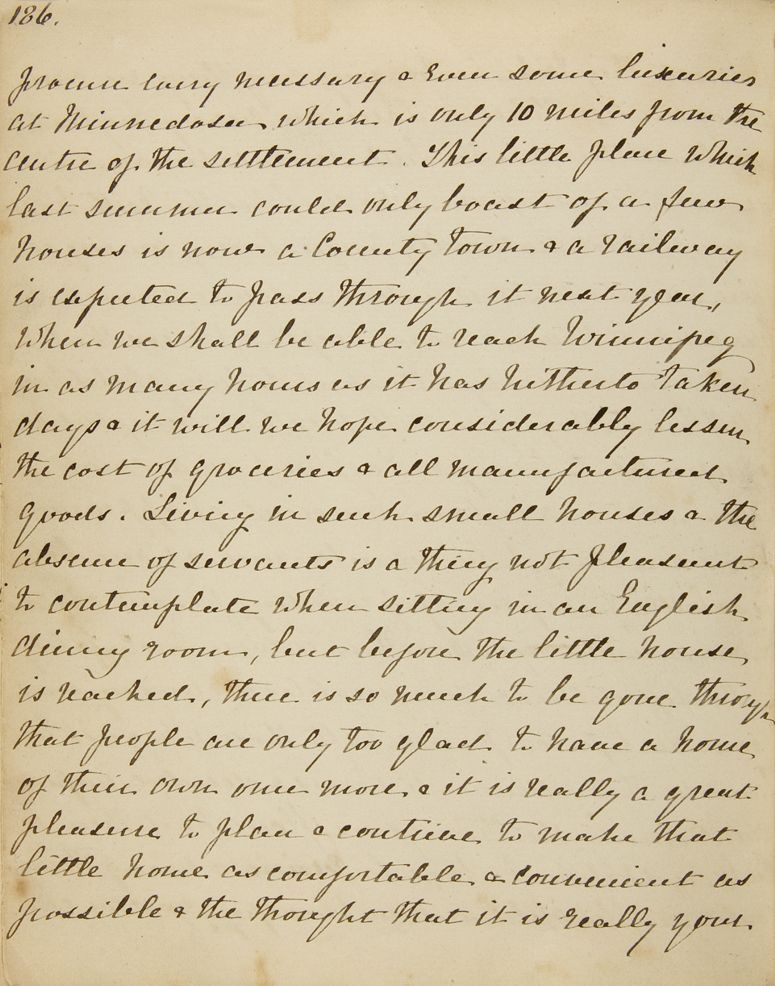 186.
procure every necessary & even some luxuries
at Minnedosa, which is only 10 miles from the
centre of the settlement. This little place which
last summer could only boast of a few
houses is now a County town & a railway
is expected to pass through it next year,
when we shall be able to reach Winnipeg
in as many hours as it has hitherto taken
days & it will we hope considerably lessen
the cost of groceries & all manufactured
goods. Living in such small houses & the
absence of servants is a thing not pleasant
to contemplate when sitting in an English
dining room, but before the little house
is reached, there is so much to be gone through
that people are only too glad to have a home
of their own once more & it is really a great
pleasure to plan & contrive to make that
little home as comfortable & convenient as
possible & the thought that it is really your